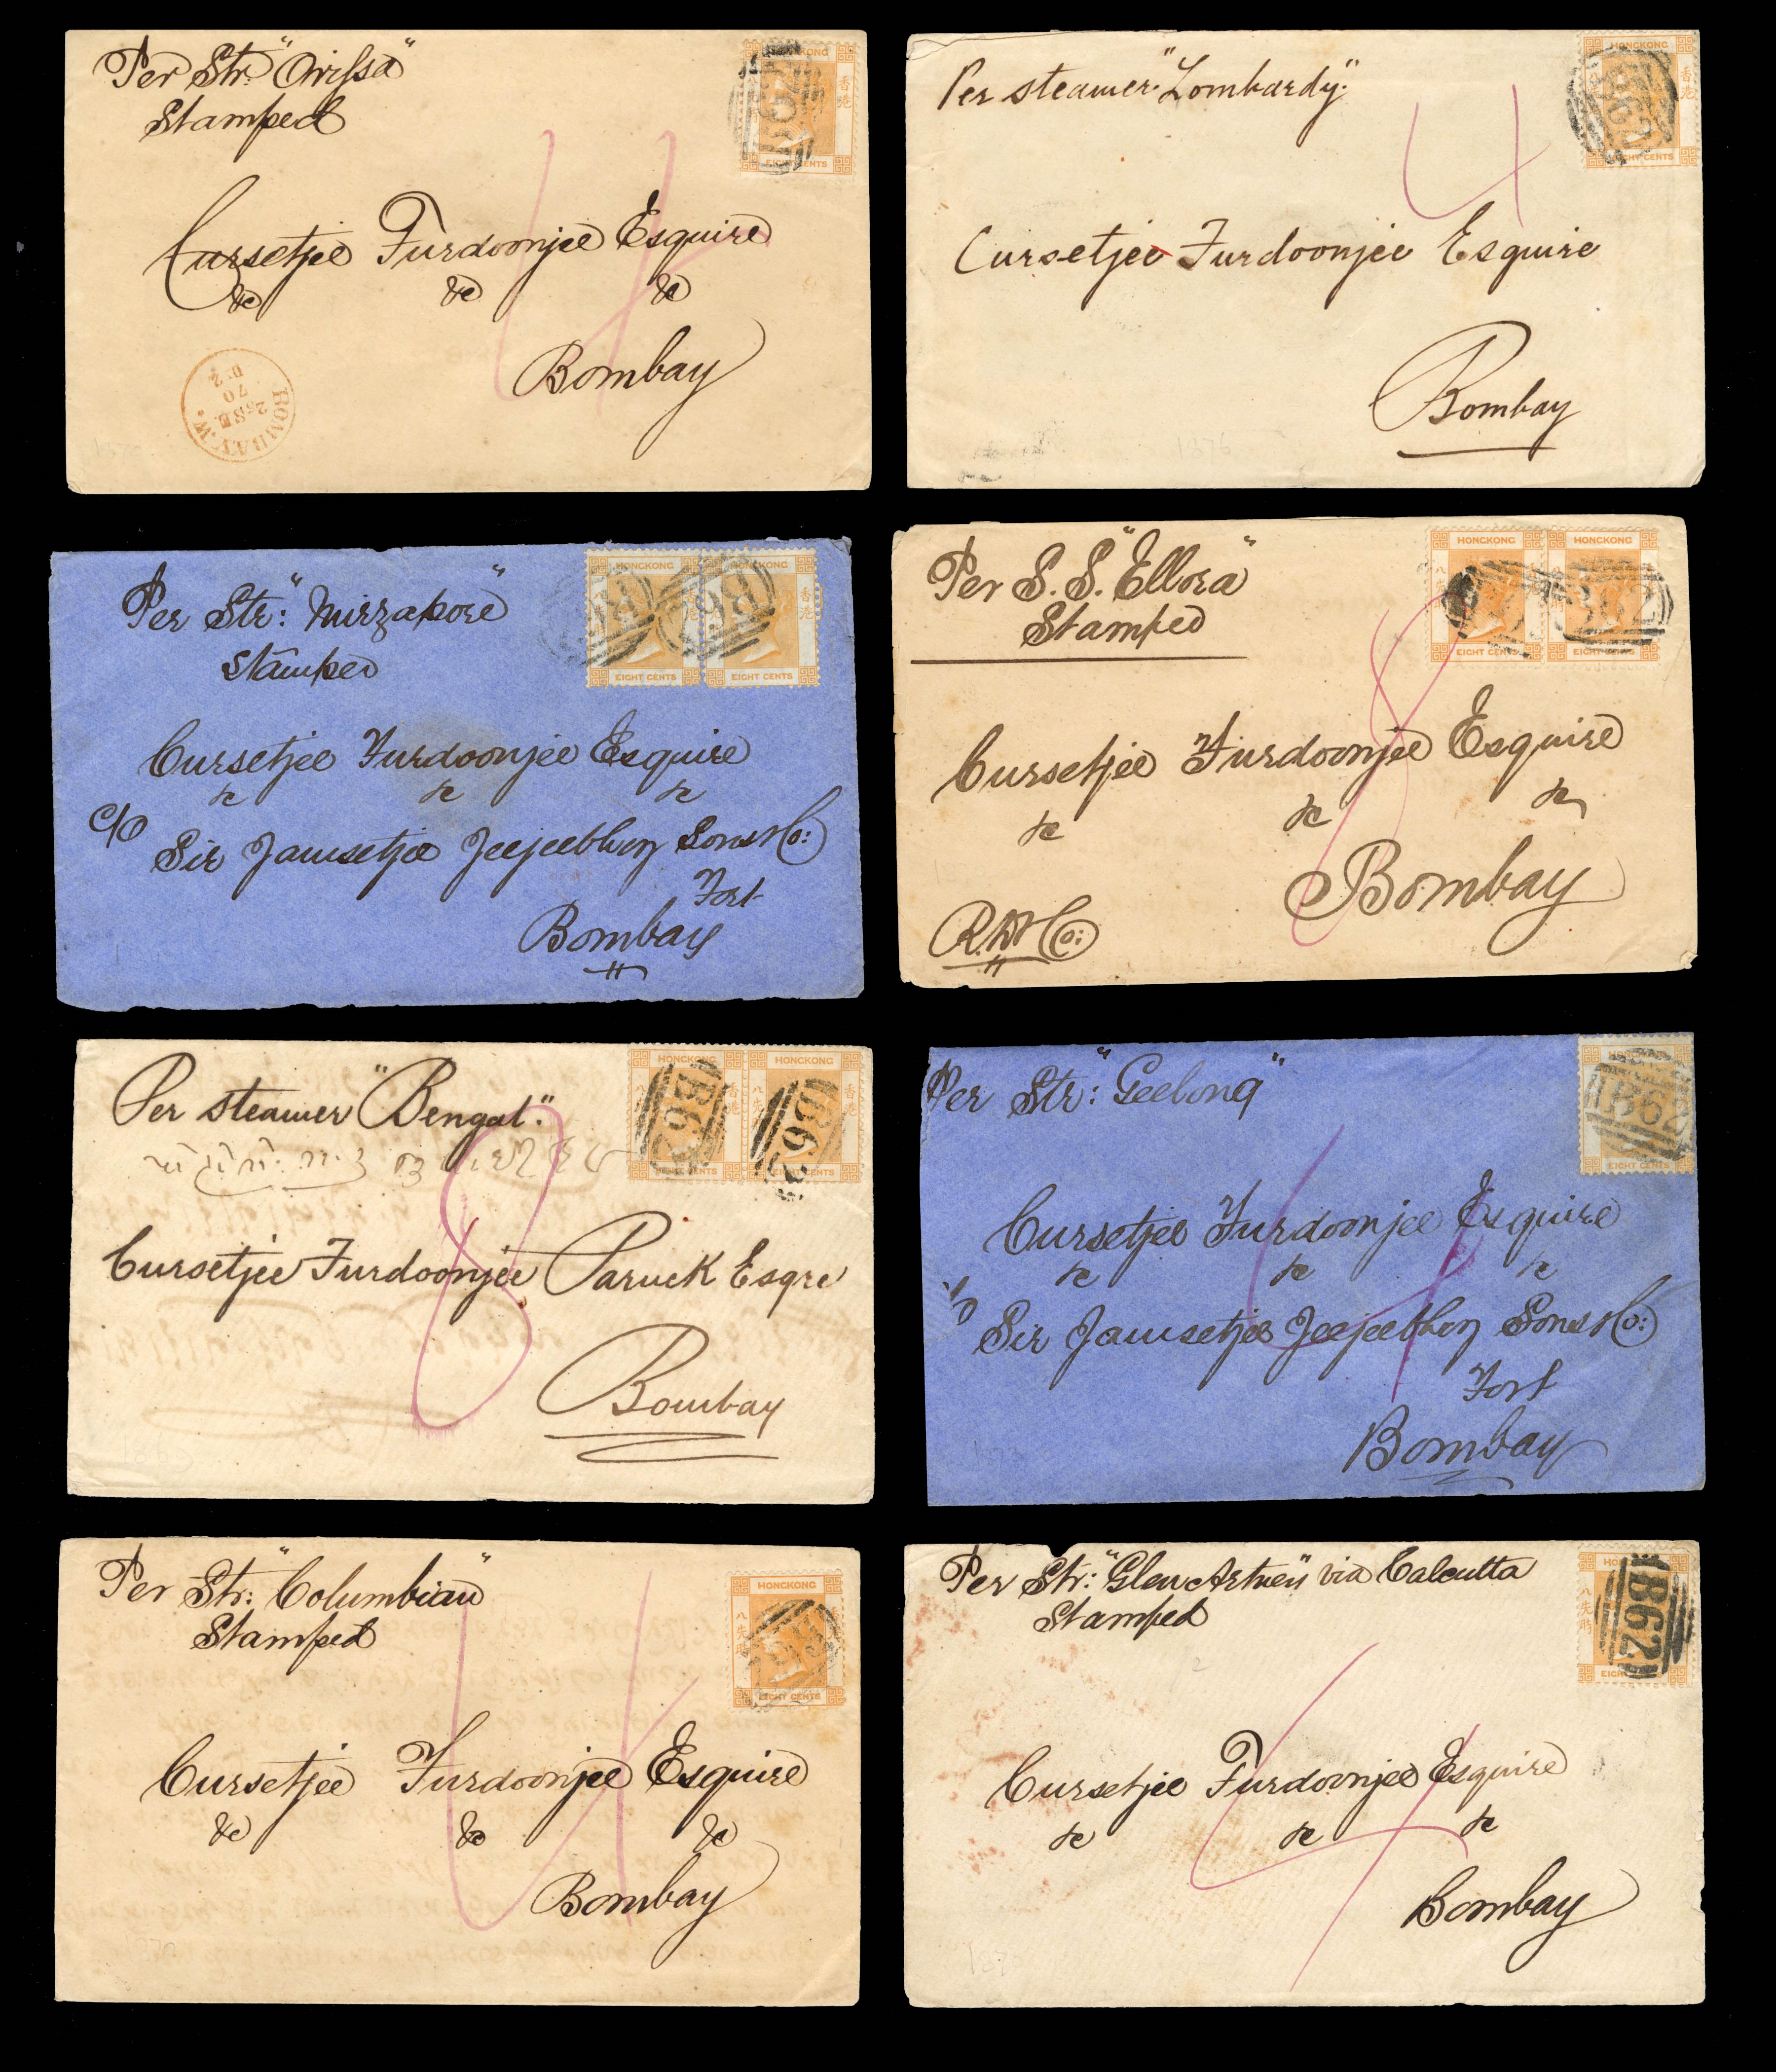 Per Str. "Orissa"
Stamped
HONGKONG
B62
EIGHT CENTS
Cursetjee Furdoonjee Esquire
&c &c &c
Bombay
BOMBAY.W.
26 SE
70
D.2
4
Per steamer "Lombardy".
HONGKONG
香港
B62
EIGHT CENTS
4
Cursetjee Furdoonjee Esquire
Bombay
1876
Per Str: "Mirzapore"
Stamped
HONGKONG HONGKONG
香港
B62 B62
EIGHT CENTS EIGHT CENTS
Cursetjee Furdoonjee Esquire
&c &c &c
C/O Sir Jamsetjee Jeejeebhoy Sons & Co:
Fort
Bombay
Per S. S. "Ellora"
Stamped
HONGKONG HONGKONG
B62
EIGHT CENTS EIGHT CENTS
8
Cursetjee Furdoonjee Esquire
&c &c &c
Bombay
Per steamer "Bengal".
HONGKONG HONGKONG
香港
B62 B62
EIGHT CENTS
8
Cursetjee Furdoonjee Paruck Esqre
Bombay
Per Str: "Geelong"
B62
EIGHT CENTS
4
Cursetjee Furdoonjee Esquire
&c &c &c
C/O Sir Jamsetjee Jeejeebhoy Sons & Co:
Fort
Bombay
Per Str: "Columbian"
Stamped
HONGKONG
八先時 香港
B62
EIGHT CENTS
4
Cursetjee Furdoonjee Esquire
&c &c &c
Bombay
Per Str: "Glen Artney" via Calcutta
Stamped
八先時
B62
4
Cursetjee Furdoonjee Esquire
&c &c &c
Bombay